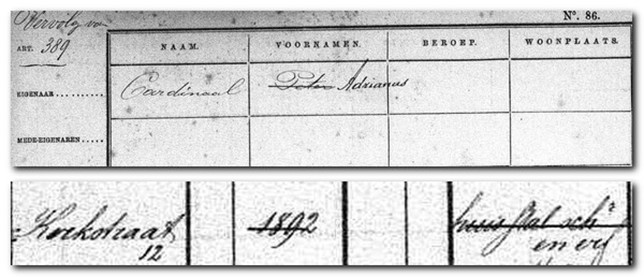 Vervolg van
Nº. 86.
ART. 389
NAAM. VOORNAMEN. BEROEP. WOONPLAATS.
EIGENAAR.......... Cardinaal Peter Adrianus
MEDE-EIGENAREN.....
Kerkstraat 1892 huis stal sch^r
12 en erf